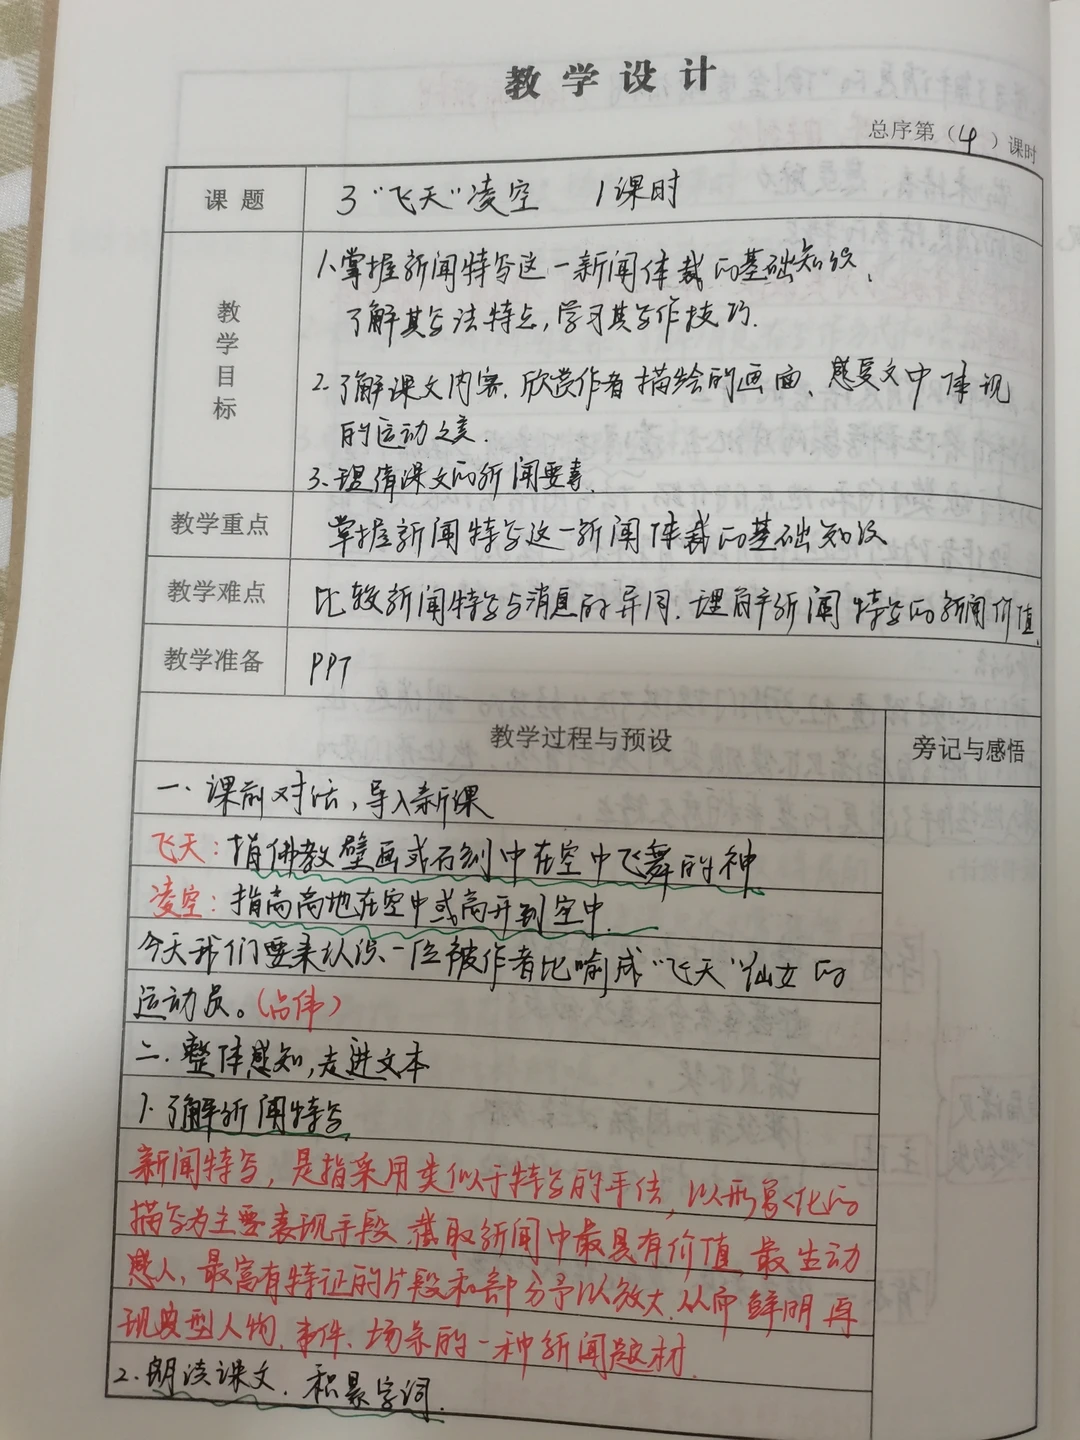 教学设计
总序第（4）课时
课题 3 “飞天”凌空 1课时
教学目标
1.掌握新闻特写这一新闻体裁的基础知识、
了解其写法特点，学习其写作技巧.
2.了解课文内容.欣赏作者描绘的画面、感受文中体现
的运动之美.
3.理清课文的新闻要素.
教学重点 掌握新闻特写这一新闻体裁的基础知识
教学难点 比较新闻特写与消息的异同.理解新闻特写的新闻价值.
教学准备 PPT
教学过程与预设 旁记与感悟
一、课前对话，导入新课
飞天：指佛教壁画或石刻中在空中飞舞的神
凌空：指高高地在空中或高升到空中.
今天我们要来认识一位被作者比喻成“飞天”仙女的
运动员。（吕伟）
二.整体感知，走进文本
1.了解新闻特写
新闻特写，是指采用类似于特写的手法，以形象化的
描写为主要表现手段.截取新闻中最具有价值、最生动
感人，最富有特征的片段和部分予以放大.从而鲜明再
现典型人物、事件、场景的一种新闻题材.
2.朗读课文.积累字词.